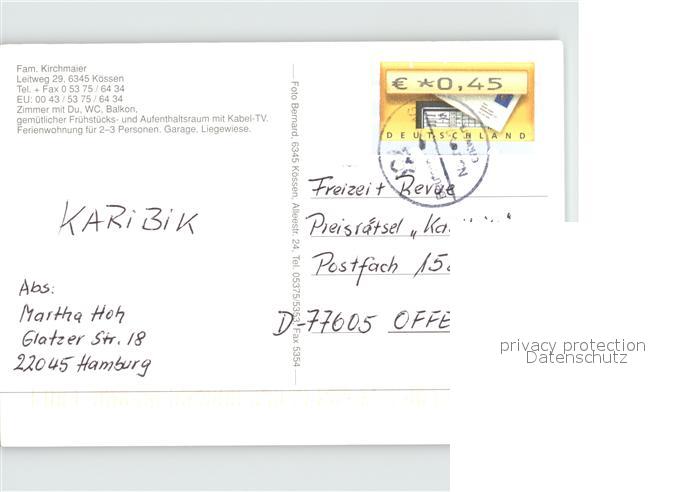 Fam. Kirchmaier
Leitweg 29, 6345 Kössen
Tel. + Fax 0 53 75 / 64 34
EU: 00 43 / 53 75 / 64 34
Zimmer mit Du, WC, Balkon,
gemütlicher Frühstücks- und Aufenthaltsraum mit Kabel-TV.
Ferienwohnung für 2–3 Personen. Garage, Liegewiese.
Foto Bernard, 6345 Kössen, Alleestr. 24, Tel. 05375/5353, Fax 5354
€ *0,45
DEUTSCHLAND
KARIBIK
Abs:
Martha Hoh
Glatzer Str. 18
22045 Hamburg
Freizeit Revue
Preisrätsel
Postfach
D-77605 OFFE
privacy protection
Datenschutz